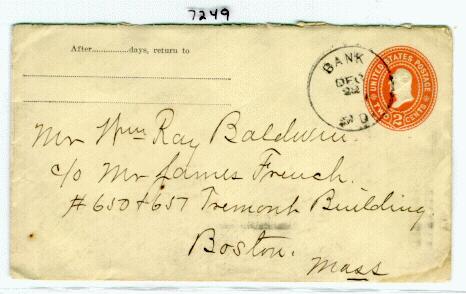 7249
After..............days, return to
BANK
DEC
22
UNITED STATES POSTAGE
TWO 2 CENTS
Mr Wm Ray Baldwin.
c/o Mr James French.
#650+657 Tremont Building.
Boston.
Mass